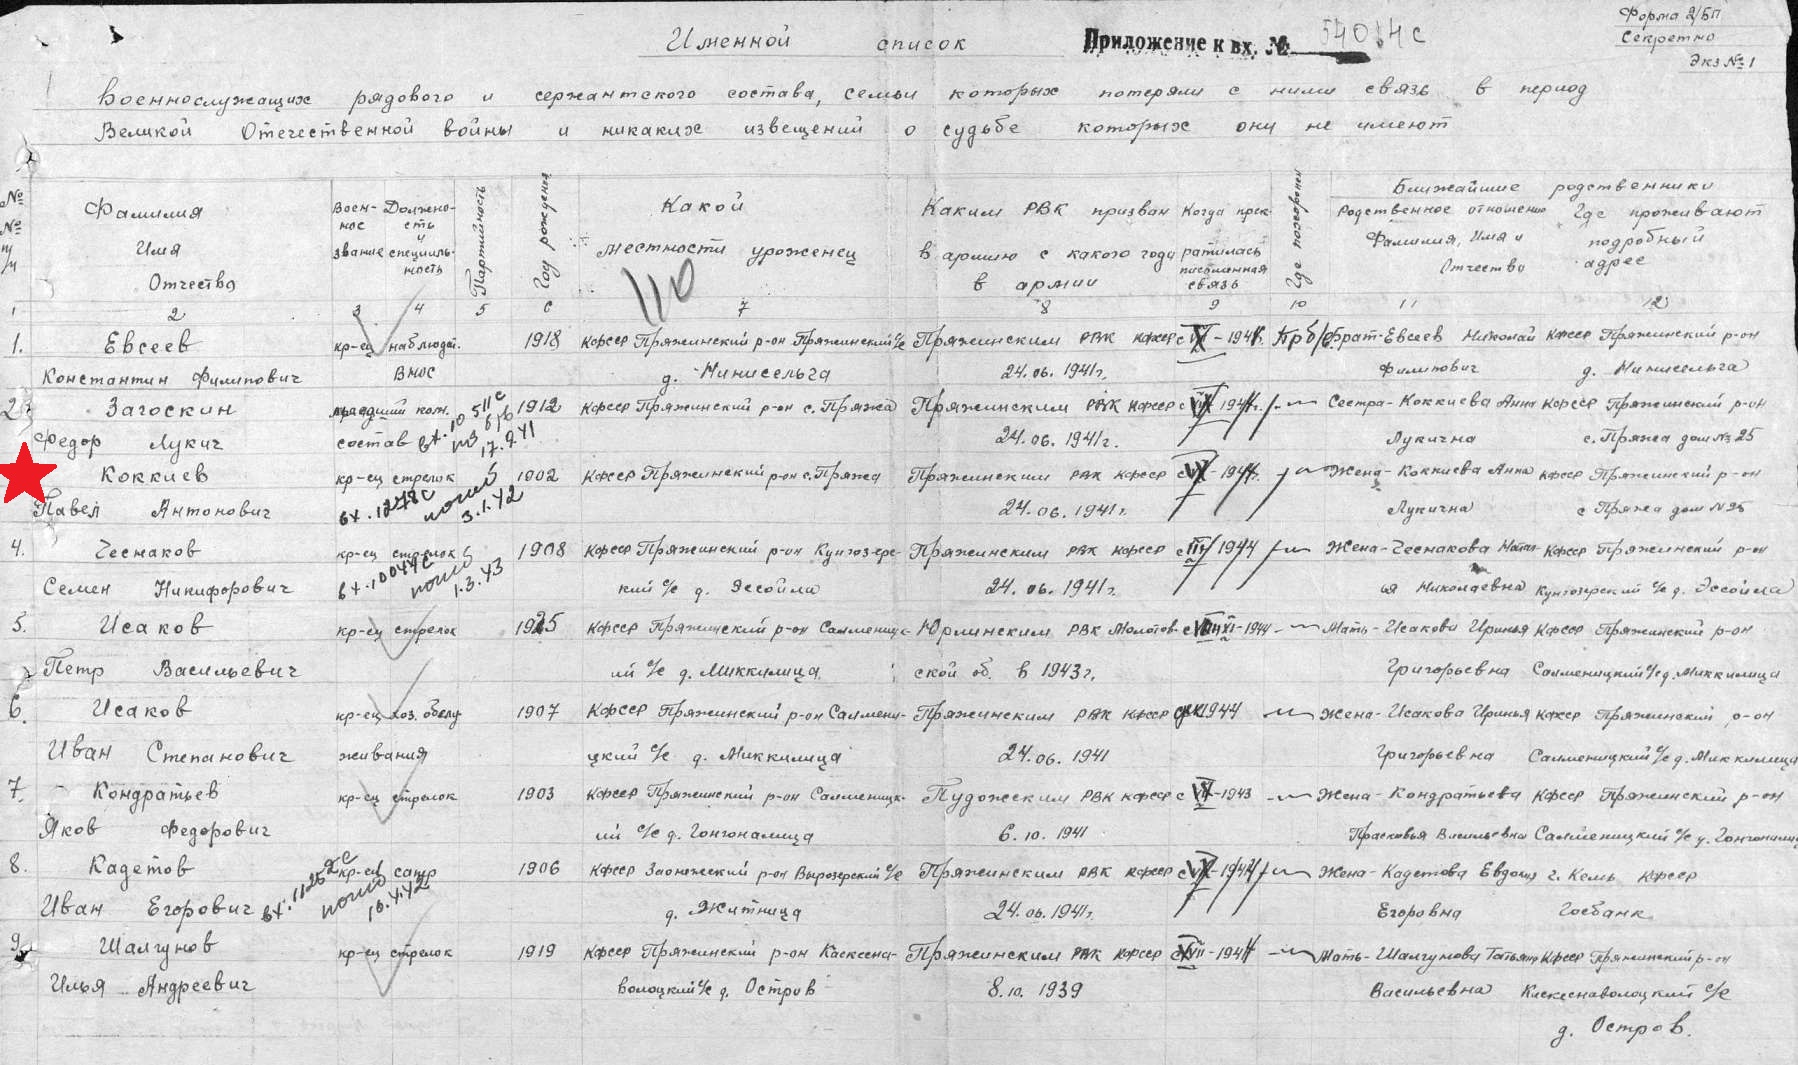 Форма 2/БП
Секретно
Экз №1
Именной список
Приложение к вх. № 54014с
военнослужащих рядового и сержантского состава, семьи которых потеряли с ними связь в период
Великой Отечественной войны и никаких извещений о судьбе которых они не имеют
№ № п/п
Фамилия Имя Отчество
Воен-ное звание
Должно-сть и специаль-ность
Партийность
Год рождения
Какой местности уроженец
Каким РВК призван в армию с какого года в армии
Когда прек-ратилась письменная связь
Где похоронен
Ближайшие родственники
Родственное отношение Фамилия, Имя и Отчество
Где проживают подробный адрес
110
1 2 3 4 5 6 7 8 9 10 11 12
1. Евсеев кр-ец наблюдат. 1918 Кфсср Пряжинский р-он Пряжинский с/с Пряжинским РВК Кфсср Пр б/с Брат-Евсеев Николай Кфсср Пряжинский р-он
Константин Филипович ВНОС д. Минисельга 24.06.1941г. Филипович д. Минисельга
2. Загоскин младший ком. 1912 Кфсср Пряжинский р-он с. Пряжа Пряжинским РВК Кфсср Сестра-Коккиева Анна Кфсср Пряжинский р-он
Федор Лукич состав 17.9.41 24.06.1941г. Лукична с. Пряжа дом №25
Коккиев кр-ец стрелок 1902 Кфсср Пряжинский р-он с. Пряжа Пряжинским РВК Кфсср Жена-Коккиева Анна Кфсср Пряжинский р-он
Павел Антонович вх. 1278с 3.1.42 24.06.1941г. Лукична с Пряжа дом №25
4. Чеснаков кр-ец стрелок 1908 Кфсср Пряжинский р-он Кунгозере- Пряжинским РВК Кфсср с 1944 Жена-Чеснакова Кфсср Пряжинский р-он
Семен Никифорович вх. 10044с 1.3.43 кий с/с д. Эссойла 24.06.1941г. ья Николаевна Кунгозерский с/с д. Эссойла
5. Исаков кр-ец стрелок 1925 Кфсср Пряжинский р-он Салменицк- Юрлинским РВК Молотов- 1944 Мать-Исакова Иринья Кфсср Пряжинский р-он
Петр Васильевич ий с/с д. Миккилица ской об. в 1943г. Григорьевна Салменицкий с/с д. Миккилица
6. Исаков кр-ец хоз. обслу- 1907 Кфсср Пряжинский р-он Салмени- Пряжинским РВК Кфсср 1944 Жена-Исакова Иринья Кфсср Пряжинский р-он
Иван Степанович живания цкий с/с д. Миккилица 24.06.1941 Григорьевна Салменицкий с/с д. Миккилица
7. Кондратьев кр-ец стрелок 1903 Кфсср Пряжинский р-он Салменицк- Пудожским РВК Кфсср с 1943 Жена-Кондратьева Кфсср Пряжинский р-он
Яков Федорович ий с/с д. Гонгоналица 6.10.1941 Прасковья Васильевна Салменицкий с/с д. Гонгоналица
8. Кадетов кр-ец сапер 1906 Кфсср Заонежский р-он Вырозерский с/с Пряжинским РВК Кфсср Жена-Кадетова Евдокия г. Кемь Кфсср
Иван Егорович д. Житница 24.06.1941г. Егоровна Госбанк
9. Шалгунов кр-ец стрелок 1919 Кфсср Пряжинский р-он Каскесна- Пряжинским РВК Кфсср 1944 Мать-Шалгунова Татьяна Кфсср Пряжинский р-он
Илья Андреевич волоцкий с/с д. Остров 8.10.1939 Васильевна Каскеснаволоцкий с/с
д. Остров.